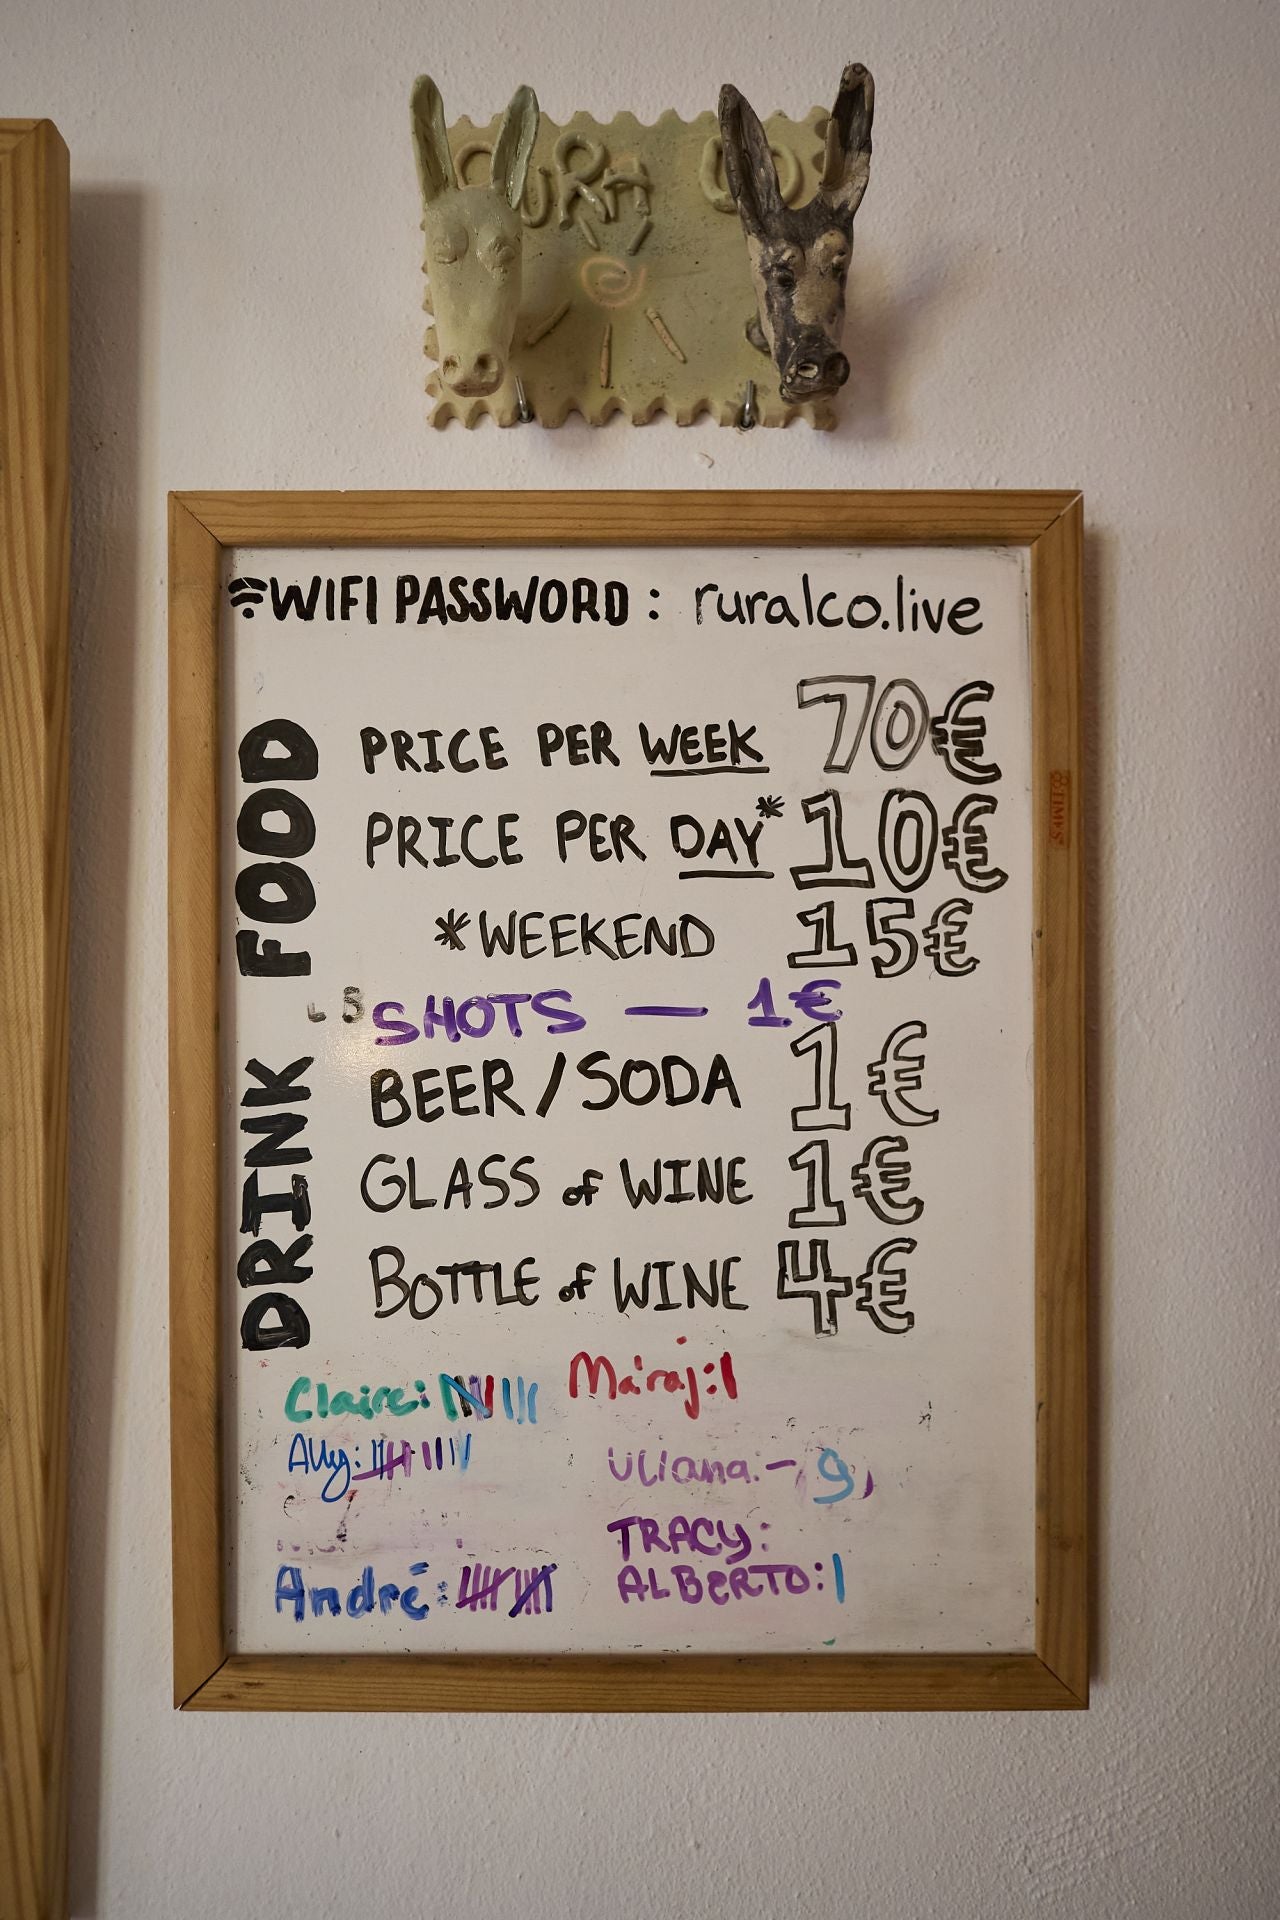 WIFI PASSWORD: ruralco.live
FOOD
PRICE PER WEEK 70€
PRICE PER DAY* 10€
*WEEKEND 15€
DRINK
SHOTS — 1€
BEER/SODA 1€
GLASS of WINE 1€
BOTTLE of WINE 4€
Claire:
Maraj:
Ally:
Uliana:- 9
TRACY:
André:
ALBERTO: